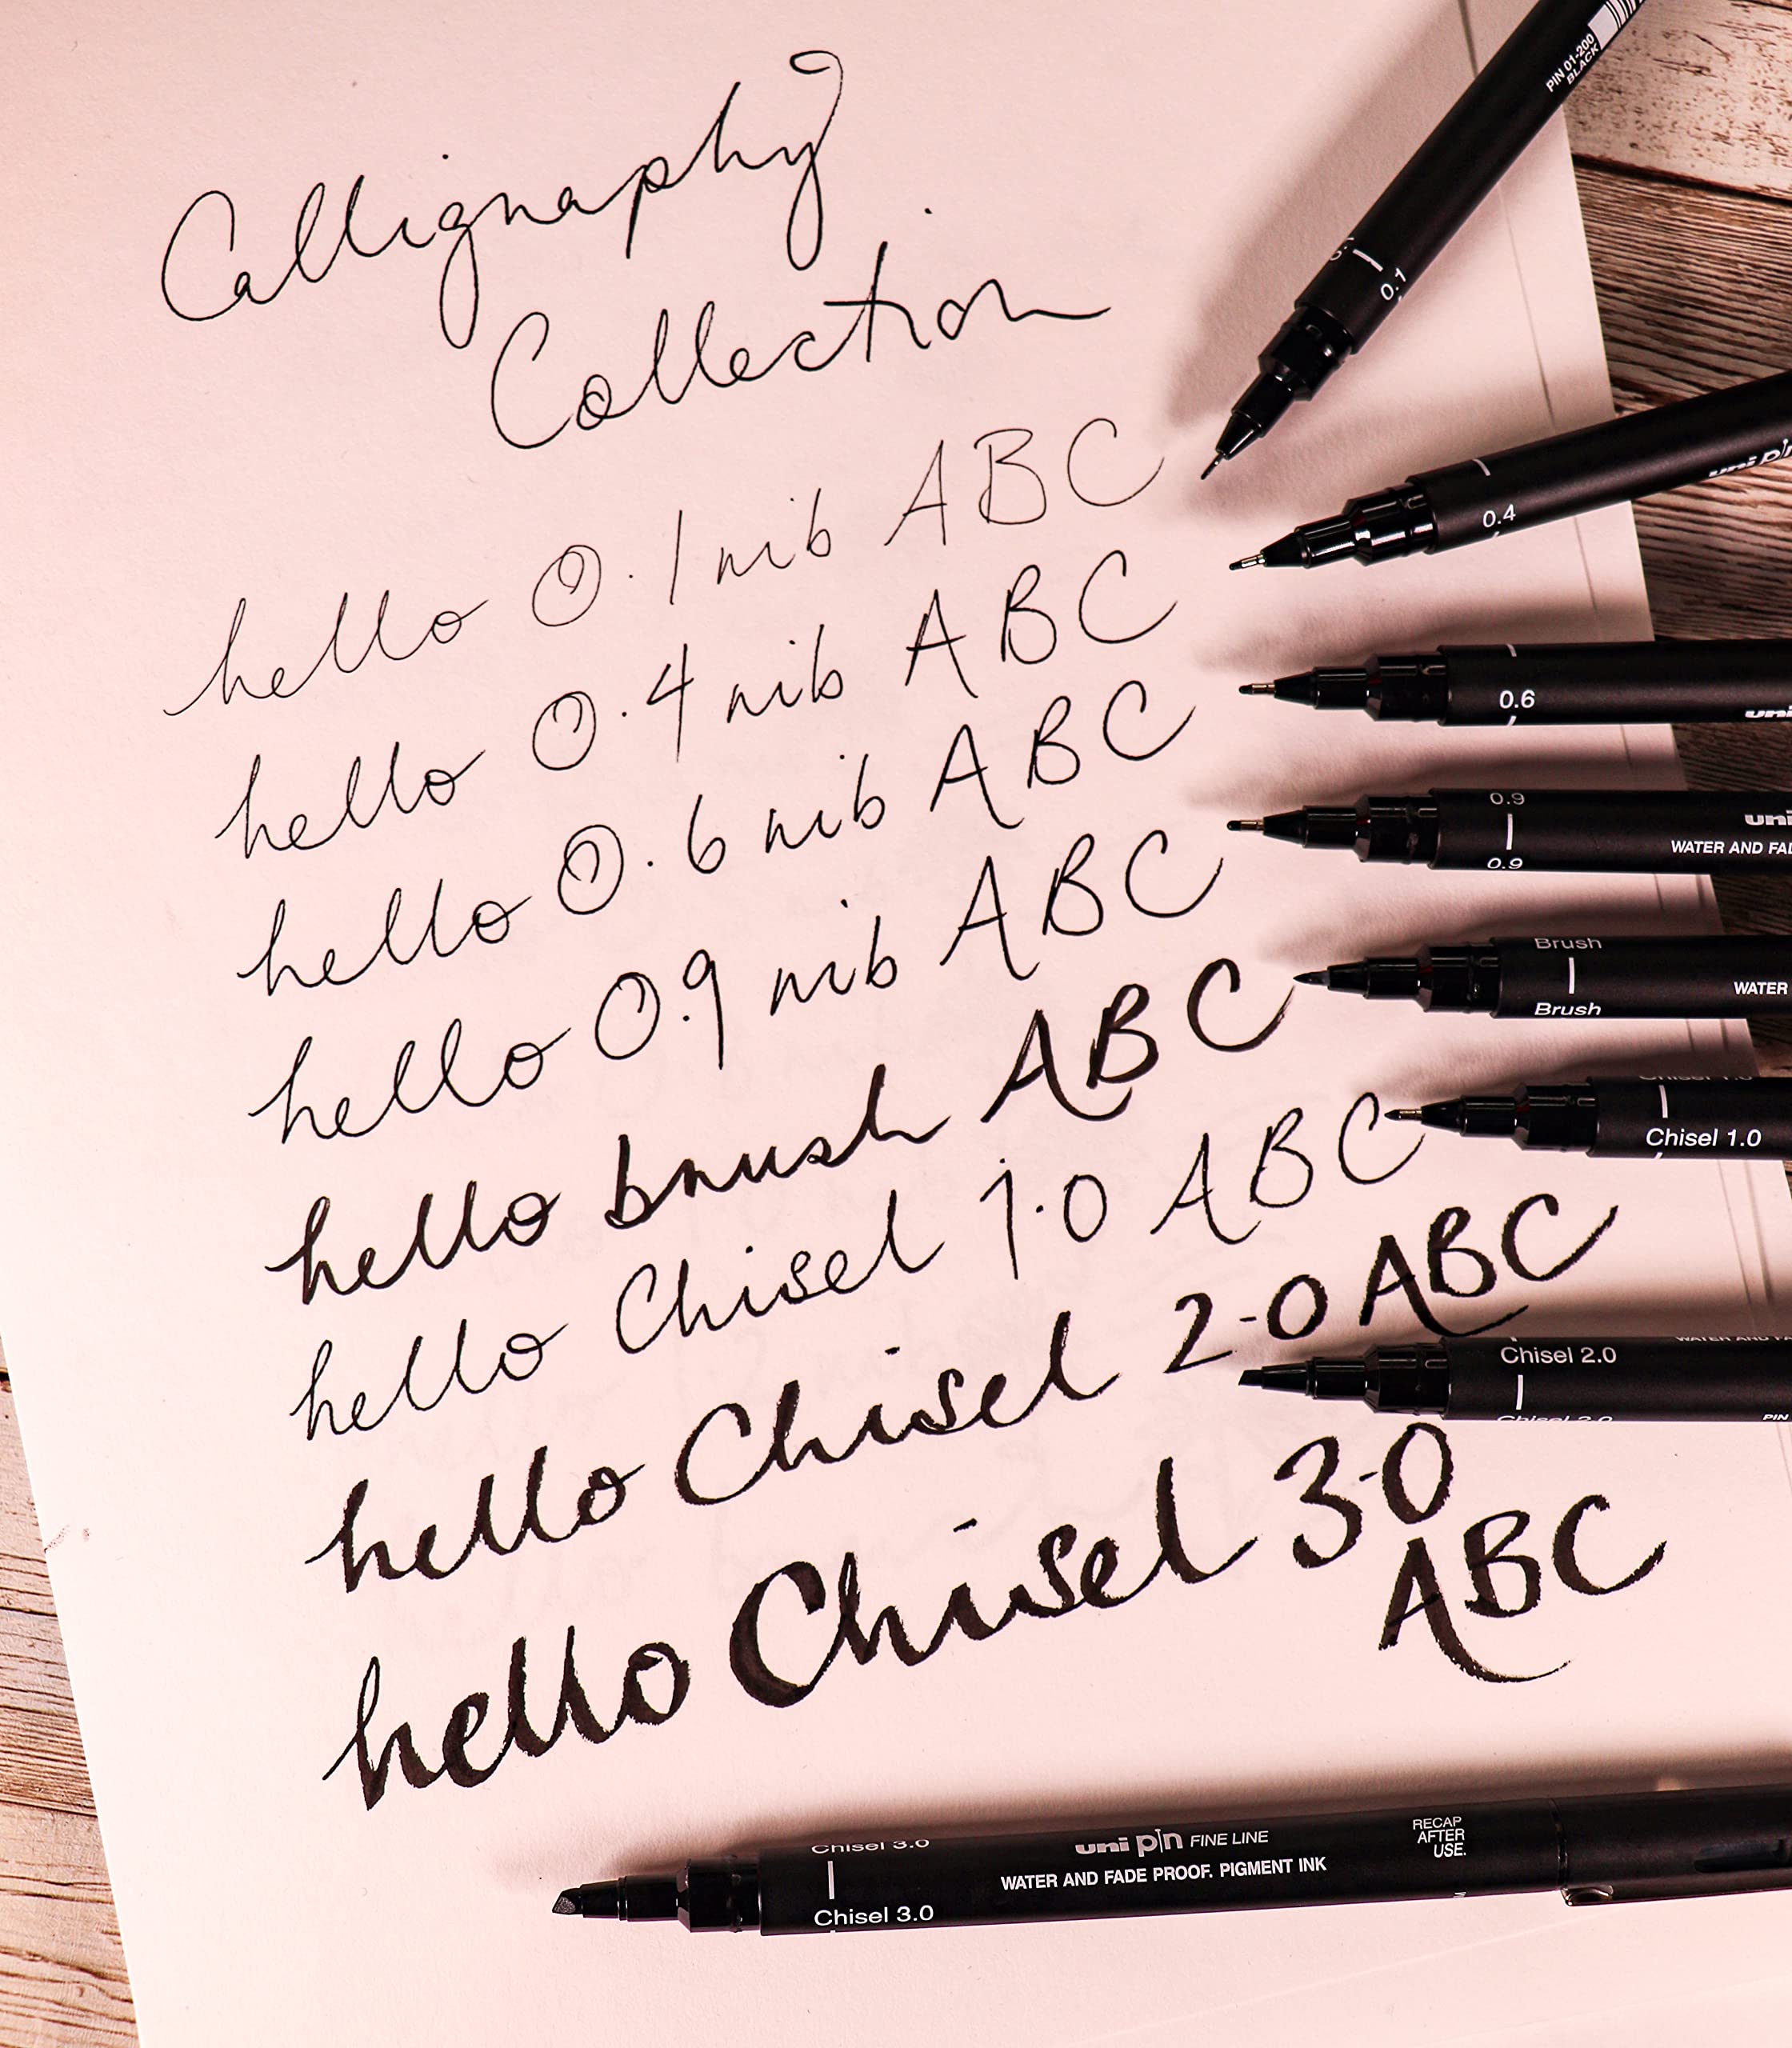 Calligraphy
Collection
hello 0.1 nib ABC
hello 0.4 nib ABC
hello 0.6 nib ABC
hello 0.9 nib ABC
hello brush ABC
hello Chisel 1.0 ABC
hello Chisel 2.0 ABC
hello Chisel 3.0
ABC
PIN 01-200
BLACK
0.1
uni pin
0.4
0.6
uni
0.9
uni
WATER AND FA
0.9
Brush
WATER
Brush
Chisel 1.0
Chisel 1.0
WATER AND FA
Chisel 2.0
Chisel 2.0
PIN
Chisel 3.0
uni pin FINE LINE
RECAP
AFTER
USE.
WATER AND FADE PROOF. PIGMENT INK
Chisel 3.0